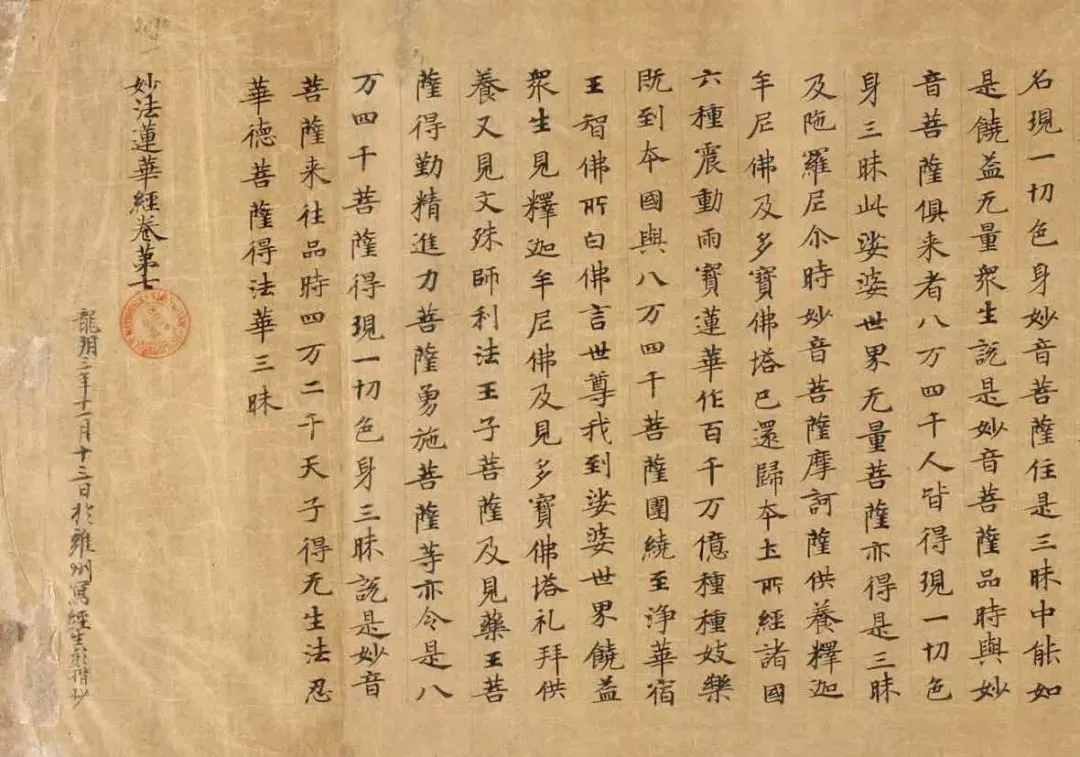 名現一切色身妙音菩薩住是三昧中能如
是饒益无量衆生說是妙音菩薩品時與妙
音菩薩俱来者八万四千人皆得現一切色
身三昧此娑婆世界无量菩薩亦得是三昧
及陁羅尼尒時妙音菩薩摩訶薩供養釋迦
牟尼佛及多寶佛塔已還歸本土所經諸國
六種震動雨寶蓮華作百千万億種種妓樂
既到本國與八万四千菩薩圍繞至淨華宿
王智佛所白佛言世尊我到娑婆世界饒益
衆生見釋迦牟尼佛及見多寶佛塔礼拜供
養又見文殊師利法王子菩薩及見藥王菩
薩得勤精進力菩薩勇施菩薩等亦令是八
万四千菩薩得現一切色身三昧說是妙音
菩薩来往品時四万二千天子得无生法忍
華德菩薩得法華三昧
妙法蓮華經卷第七
龍朔三年十一月十三日於雍州寫經生楷抄